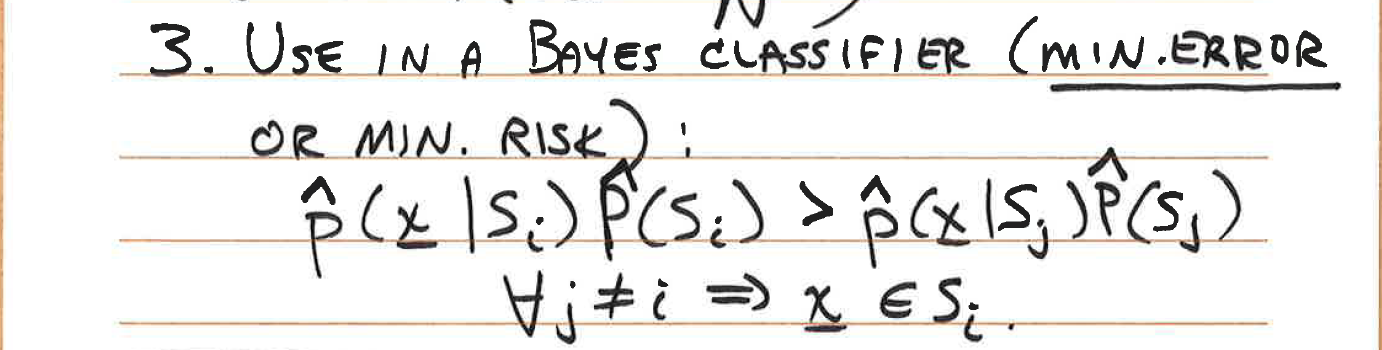 3. USE IN A BAYES CLASSIFIER (MIN. ERROR
OR MIN. RISK):
p̂(x̲|Sᵢ)P̂(Sᵢ) > p̂(x̲|Sⱼ)P̂(Sⱼ)
∀j≠i ⇒ x̲ ∈ Sᵢ.